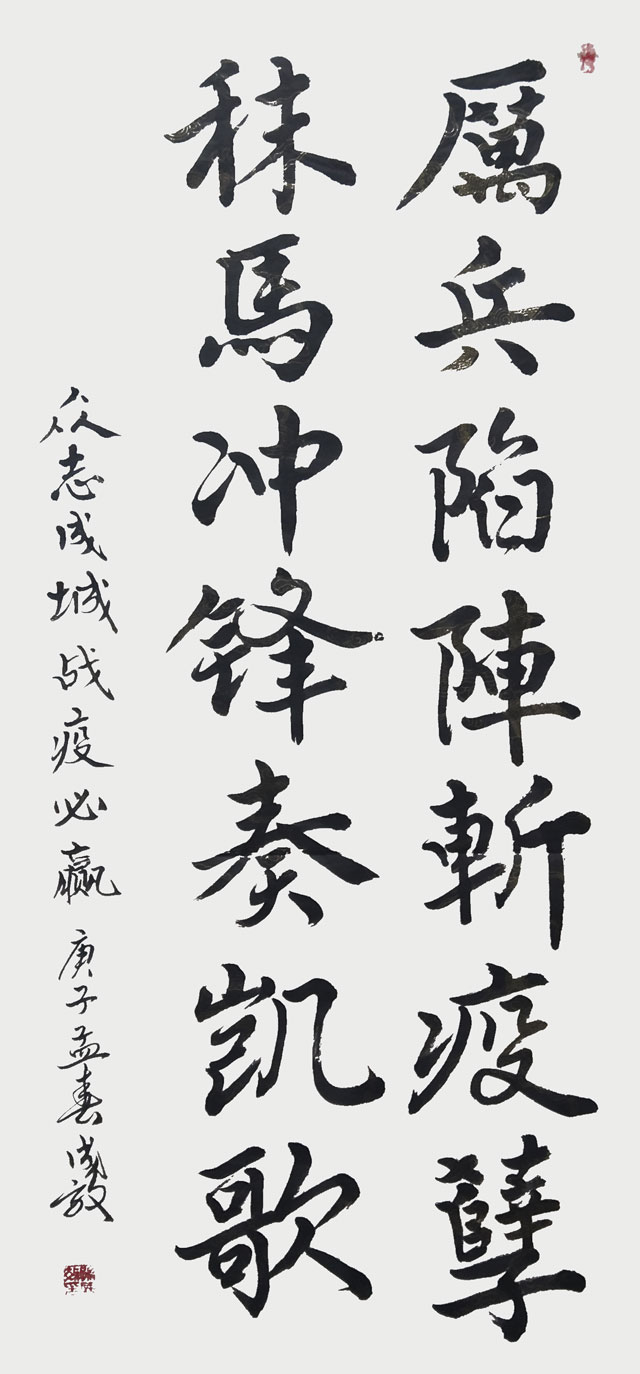 厲兵陷陣斬疫孽
秣馬冲锋奏凯歌
众志成城战疫必赢 庚子孟春